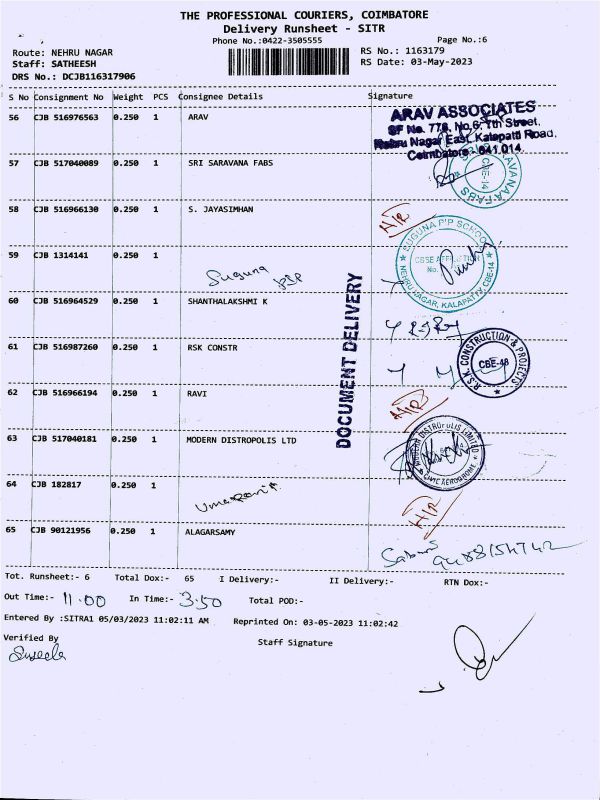 THE PROFESSIONAL COURIERS, COIMBATORE
Delivery Runsheet - SITR
Phone No.:0422-3505555 Page No.:6
Route: NEHRU NAGAR RS No.: 1163179
Staff: SATHEESH RS Date: 03-May-2023
DRS No.: DCJB116317906
S No Consignment No Weight PCS Consignee Details Signature
56 CJB 516976563 0.250 1 ARAV
ARAV ASSOCIATES
SF No. 778, No.6, 7th Street,
Nehru Nagar East, Kalapatti Road,
Coimbatore - 641 014
57 CJB 517040089 0.250 1 SRI SARAVANA FABS
CBE-14
58 CJB 516966130 0.250 1 S. JAYASIMHAN H/R
SUGUNA PIP SCHOOL
CBSE AFFILIATION
No.
NEHRU NAGAR, KALAPATTY, CBE-14
59 CJB 1314141 0.250 1 Suguna PSP
60 CJB 516964529 0.250 1 SHANTHALAKSHMI K
DOCUMENT DELIVERY
61 CJB 516987260 0.250 1 RSK CONSTR
R.S.K. CONSTRUCTION & PROJECTS
CBE-48
62 CJB 516966194 0.250 1 RAVI H/R
63 CJB 517040181 0.250 1 MODERN DISTROPOLIS LTD
MODERN DISTROPOLIS LIMITED
CIVIL AERODROME
64 CJB 182817 0.250 1 H/R
65 CJB 90121956 0.250 1 ALAGARSAMY
Tot. Runsheet:- 6 Total Dox:- 65 I Delivery:- II Delivery:- RTN Dox:-
Out Time:- 11.00 In Time:- 3.50 Total POD:-
Entered By :SITRA1 05/03/2023 11:02:11 AM Reprinted On: 03-05-2023 11:02:42
Verified By Staff Signature
Suseela